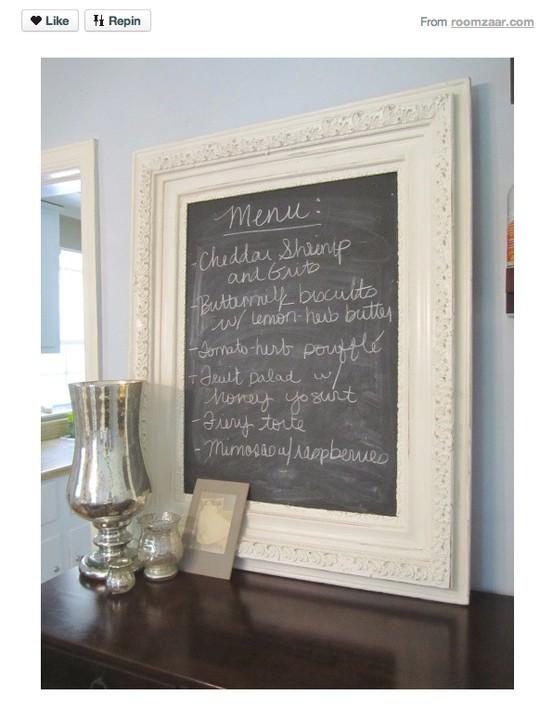 Like Repin From roomzaar.com
Menu:
- Cheddar Shrimp
and Grits
- Buttermilk biscuits
w/ lemon-herb butter
- Tomato-herb soufflé
- Fruit salad w/
honey yogurt
- Fiery torte
- Mimosas w/raspberries